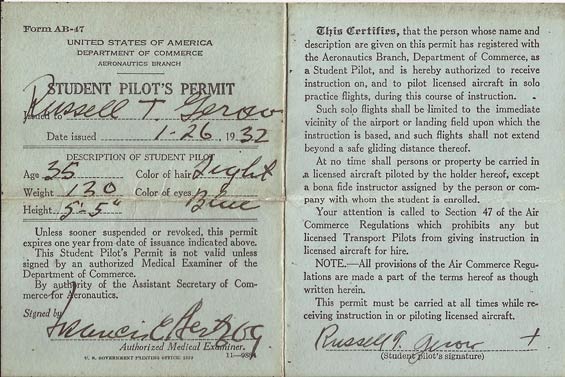 Form AB-47
UNITED STATES OF AMERICA
DEPARTMENT OF COMMERCE
AERONAUTICS BRANCH
STUDENT PILOT'S PERMIT
Issued to Russell T. Gerow
Date issued 1-26, 1932
DESCRIPTION OF STUDENT PILOT
Age 35 Color of hair Light
Weight 130 Color of eyes Blue
Height 5'-5"
Unless sooner suspended or revoked, this permit
expires one year from date of issuance indicated above.
This Student Pilot's Permit is not valid unless
signed by an authorized Medical Examiner of the
Department of Commerce.
By authority of the Assistant Secretary of Com-
merce for Aeronautics.
Signed by Francis E. Hertzog
Authorized Medical Examiner.
U. S. GOVERNMENT PRINTING OFFICE: 11—
This Certifies, that the person whose name and
description are given on this permit has registered with
the Aeronautics Branch, Department of Commerce, as
a Student Pilot, and is hereby authorized to receive
instruction on, and to pilot licensed aircraft in solo
practice flights, during this course of instruction.
Such solo flights shall be limited to the immediate
vicinity of the airport or landing field upon which the
instruction is based, and such flights shall not extend
beyond a safe gliding distance thereof.
At no time shall persons or property be carried in
a licensed aircraft piloted by the holder hereof, except
a bona fide instructor assigned by the person or com-
pany with whom the student is enrolled.
Your attention is called to Section 47 of the Air
Commerce Regulations which prohibits any but
licensed Transport Pilots from giving instruction in
licensed aircraft for hire.
NOTE.—All provisions of the Air Commerce Regu-
lations are made a part of the terms hereof as though
written herein.
This permit must be carried at all times while re-
ceiving instruction in or piloting licensed aircraft.
Russell T. Gerow +
(Student pilot's signature)